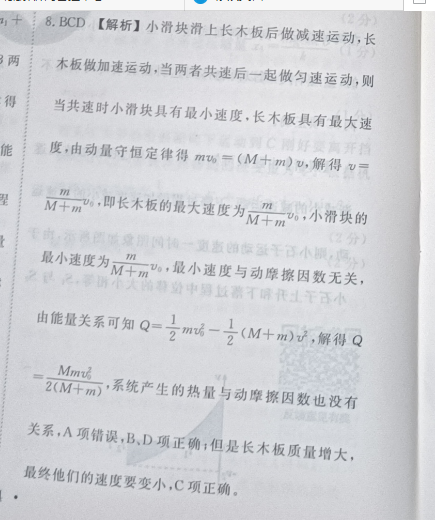 8. BCD 【解析】小滑块滑上长木板后做减速运动,长
木板做加速运动,当两者共速后一起做匀速运动,则
当共速时小滑块具有最小速度,长木板具有最大速
度,由动量守恒定律得 mv₀=(M+m)v,解得 v=
m/(M+m) v₀,即长木板的最大速度为 m/(M+m) v₀,小滑块的
最小速度为 m/(M+m) v₀,最小速度与动摩擦因数无关,
由能量关系可知 Q=1/2 mv₀²-1/2 (M+m)v²,解得 Q
=Mmv₀²/2(M+m),系统产生的热量与动摩擦因数也没有
关系,A 项错误,B、D 项正确;但是长木板质量增大,
最终他们的速度要变小,C 项正确。
两
得
能
程